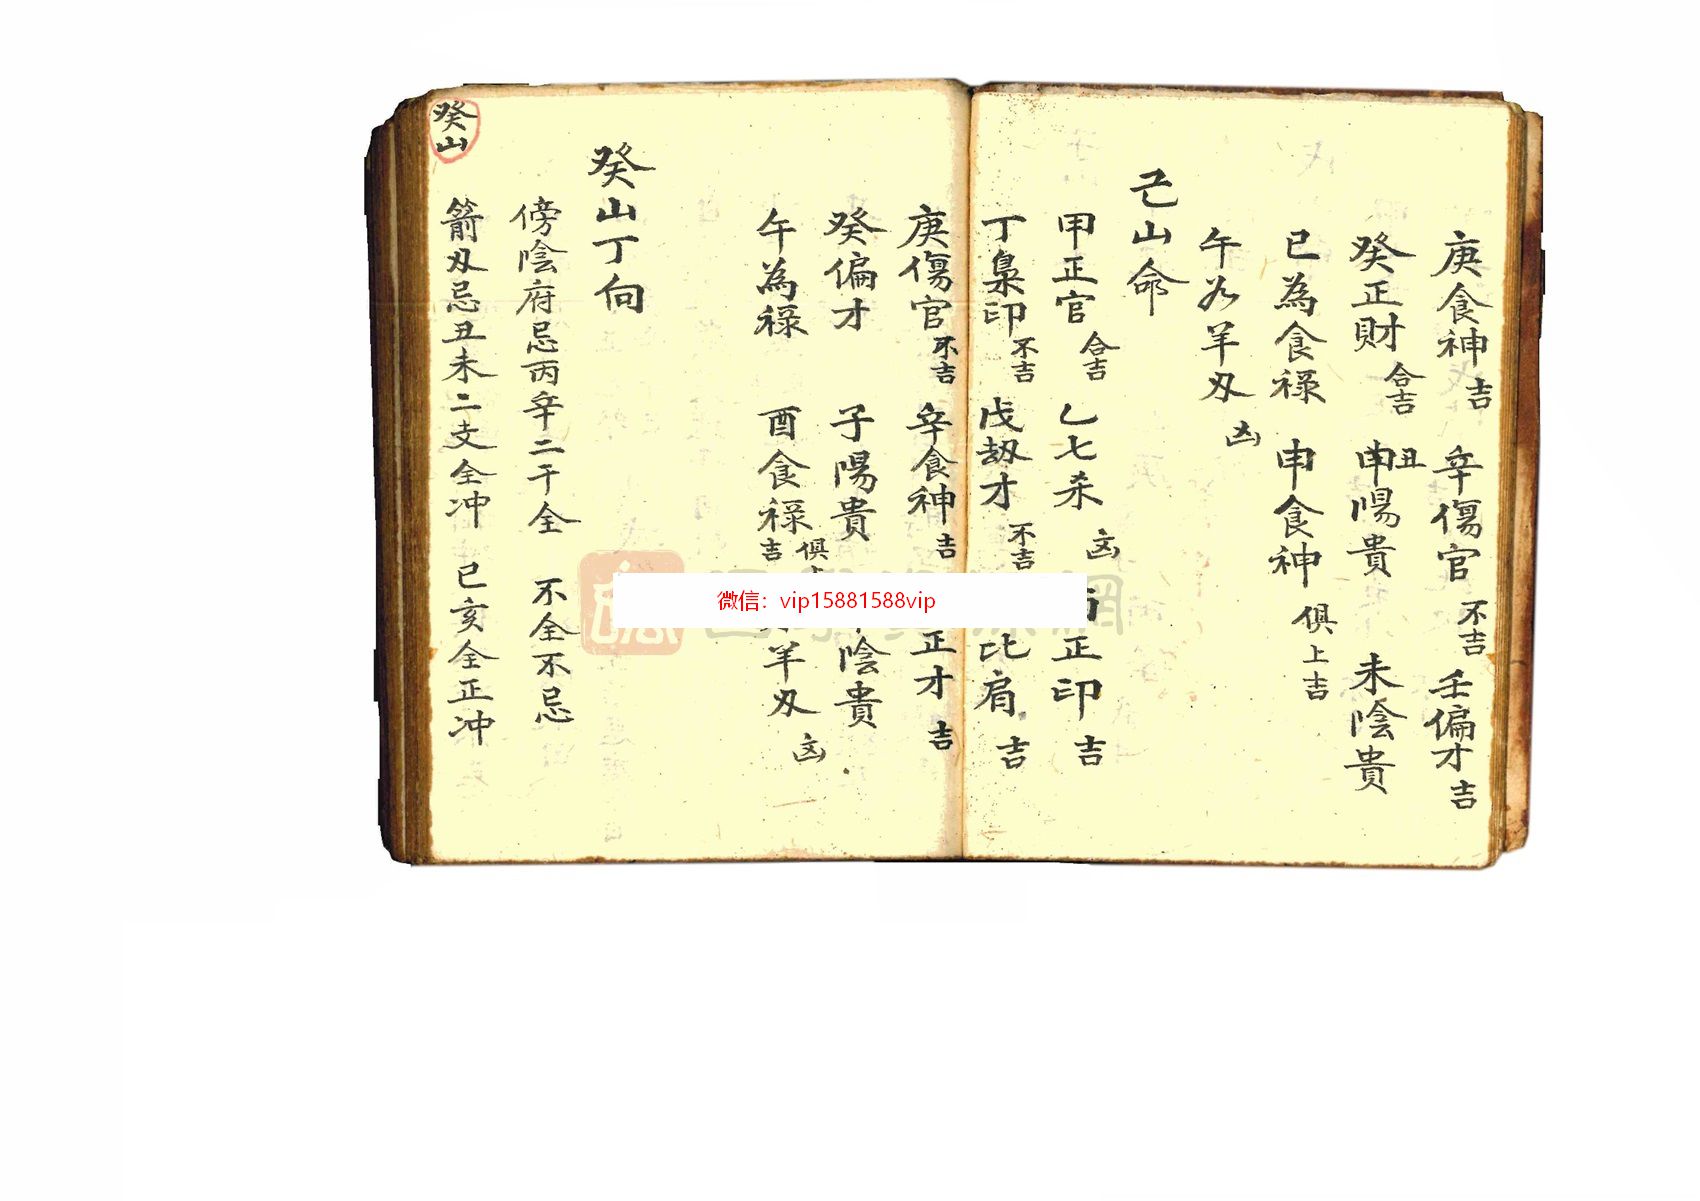 庚食神吉 辛傷官不吉 壬偏才吉
癸正財合吉 丑申陽貴 未陰貴
巳為食祿 申食神俱上吉
午為羊刃凶
己山命
甲正官合吉 乙七杀凶 正印吉
丁梟印不吉 戊劫才不吉 比肩吉
庚傷官不吉 辛食神吉 正才吉
癸偏才 子陽貴 陰貴
午為祿 酉食祿吉 俱 羊刃凶
癸山丁向
傍陰府忌丙辛二干全 不全不忌
箭刃忌丑未二支全冲 巳亥全正冲
癸山
微信：vip15881588vip